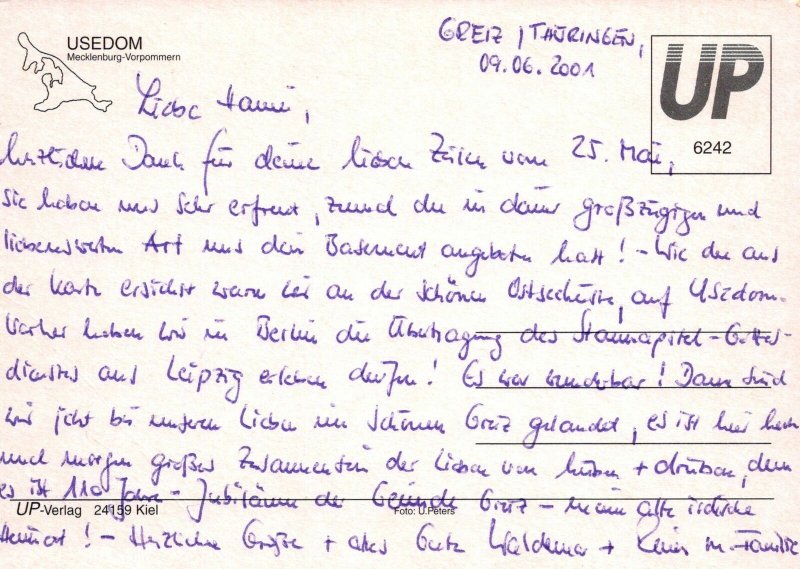 USEDOM
Mecklenburg-Vorpommern
GREIZ / THÜRINGEN,
09.06.2001
UP
6242
Liebe Hanni,
herzlichen Dank für deine lieben Zeilen vom 25. Mai,
sie haben uns sehr erfreut, zumal du in deiner großzügigen und
liebenswerten Art uns dein Basement angeboten hast! - Wie du aus
der Karte ersiehst waren wir an der schönen Ostseeküste, auf Usedom.
Vorher haben wir in Berlin die Übertragung des Stammapostel-Gottes-
dienstes aus Leipzig erleben dürfen! Es war wunderbar! Dann sind
wir jetzt bei unseren Lieben im schönen Greiz gelandet, es ist hier heute
und morgen großes Zusammensein der Lieben von hüben + drüben, denn
es ist 110 Jahre-Jubiläum der Gemeinde Greiz - meine alte irdische
Heimat! - Herzliche Grüße + alles Gute Waldemar + m. Familie
UP-Verlag 24159 Kiel
Foto: U.Peters